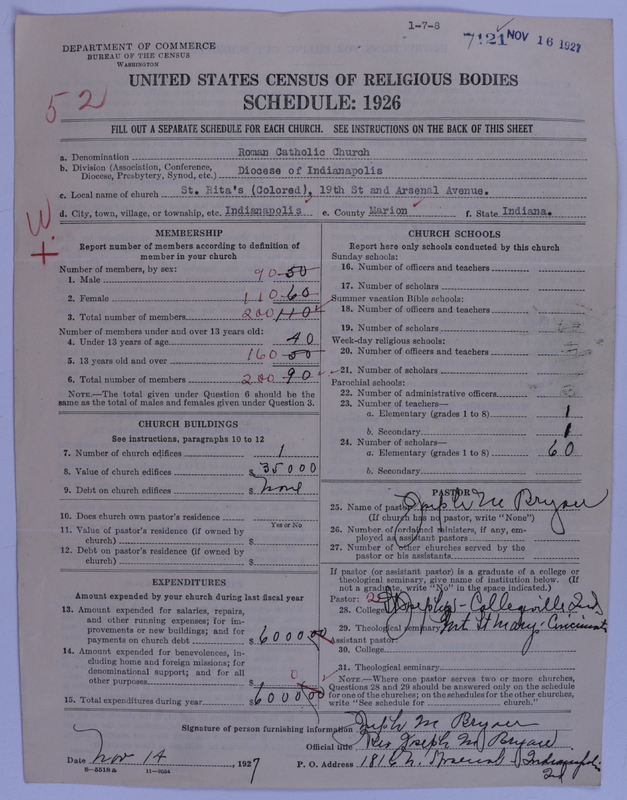 1-7-8
7121 NOV 16 1927
DEPARTMENT OF COMMERCE
BUREAU OF THE CENSUS
WASHINGTON
UNITED STATES CENSUS OF RELIGIOUS BODIES
SCHEDULE: 1926
52
FILL OUT A SEPARATE SCHEDULE FOR EACH CHURCH. SEE INSTRUCTIONS ON THE BACK OF THIS SHEET
a. Denomination Roman Catholic Church
b. Division (Association, Conference, Diocese, Presbytery, Synod, etc.) Diocese of Indianapolis
c. Local name of church St. Rita's (Colored), 19th St and Arsenal Avenue.
d. City, town, village, or township, etc. Indianapolis e. County Marion f. State Indiana.
W.
+
MEMBERSHIP
Report number of members according to definition of
member in your church
Number of members, by sex:
1. Male 90 50
2. Female 110 60
3. Total number of members 200 110
Number of members under and over 13 years old:
4. Under 13 years of age 40
5. 13 years old and over 160 50
6. Total number of members 200 90
NOTE.—The total given under Question 6 should be the
same as the total of males and females given under Question 3.
CHURCH BUILDINGS
See instructions, paragraphs 10 to 12
7. Number of church edifices 1
8. Value of church edifices $ 35000
9. Debt on church edifices $ none
10. Does church own pastor's residence
Yes or No
11. Value of pastor's residence (if owned by
church) $
12. Debt on pastor's residence (if owned by
church) $
EXPENDITURES
Amount expended by your church during last fiscal year
13. Amount expended for salaries, repairs,
and other running expenses; for im-
provements or new buildings; and for
payments on church debt $ 6000 00
14. Amount expended for benevolences, in-
cluding home and foreign missions; for
denominational support; and for all
other purposes $ 0
15. Total expenditures during year $ 6000 00
CHURCH SCHOOLS
Report here only schools conducted by this church
Sunday schools:
16. Number of officers and teachers
17. Number of scholars
Summer vacation Bible schools:
18. Number of officers and teachers
19. Number of scholars
Week-day religious schools:
20. Number of officers and teachers
21. Number of scholars
Parochial schools:
22. Number of administrative officers
23. Number of teachers—
a. Elementary (grades 1 to 8) 1
b. Secondary 1
24. Number of scholars—
a. Elementary (grades 1 to 8) 60
b. Secondary
PASTOR
25. Name of pastor Joseph M Bryan
(If church has no pastor, write "None")
26. Number of ordained ministers, if any, em-
ployed as assistant pastors
27. Number of other churches served by the
pastor or his assistants
If pastor (or assistant pastor) is a graduate of a college or
theological seminary, give name of institution below. (If
not a graduate, write "Not" in the space indicated.)
Pastor:
28. College St Josephs - Collegeville Ind
29. Theological seminary Mt St Marys - Cincinnati
Assistant pastor:
30. College
31. Theological seminary
NOTE.—Where one pastor serves two or more churches,
Questions 28 and 29 should be answered only on the schedule
for one of the churches; on the schedules for the other churches,
write "See schedule for church."
Signature of person furnishing information Joseph M Bryan
Official title Rev Joseph M Bryan
Date Nov 14, 1927 P. O. Address 1816 N. Arsenal - Indianapolis
Ind
8-5518a 11-9054